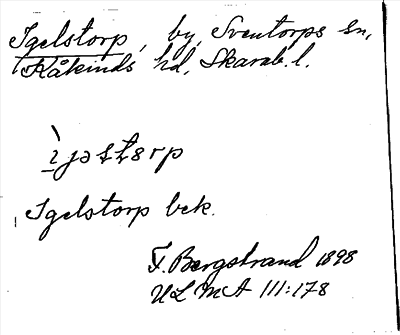 Igelstorp, by, Sventorps sn,
Kåkinds hd, Skarab. l.
Igelstorp bek.
F. Bergstrand 1898
ULMA 111:178